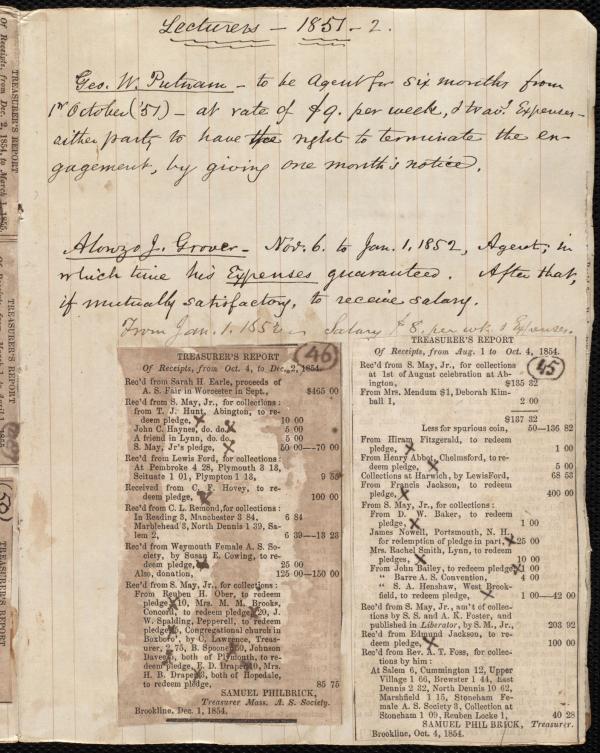 Lecturers – 1851 – 2.
Geo. W. Putnam – to be Agent for six months from
1st October ('51) – at rate of $9. per week, & trav'g Expenses –
either party to have the right to terminate the en-
gagement, by giving one month's notice.
Alonzo J. Grover – Nov. 6. to Jan. 1, 1852, Agent, in
which time his Expenses guaranteed. After that,
if mutually satisfactory, to receive salary.
From Jan. 1. 1852 – Salary $8. per wk. & Expenses.
TREASURER'S REPORT
Of Receipts, from Oct. 4, to Dec. 2, 1854.
(46)
Rec'd from Sarah H. Earle, proceeds of
A. S. Fair in Worcester in Sept., $465 00
Rec'd from S. May, Jr., for collections:
from T. J. Hunt, Abington, to re-
deem pledge, 10 00
John C. Haynes, do. do. 5 00
A friend in Lynn, do. do. 5 00
S. May, Jr's pledge, 50 00—70 00
Rec'd from Lewis Ford, for collections:
At Pembroke 4 28, Plymouth 3 13,
Scituate 1 01, Plympton 1 13, 9 55
Received from C. F. Hovey, to re-
deem pledge, 100 00
Rec'd from C. L. Remond, for collections:
In Reading 3, Manchester 3 84, 6 84
Marblehead 3, North Dennis 1 39, Sa-
lem 2, 6 39—13 23
Rec'd from Weymouth Female A. S. So-
ciety, by Susan E. Cowing, to re-
deem pledge, 25 00
Also, donation, 125 00—150 00
Rec'd from S. May, Jr., for collections:
From Reuben H. Ober, to redeem
pledge 10, Mrs. M. M. Brooks,
Concord, to redeem pledge 20, J.
W. Spalding, Pepperell, to redeem
pledge 5, Congregational church in
Boxboro', by C. Lawrence, Treas-
urer, 2 75, B. Spooner 50, Johnson
Davee 5, both of Plymouth, to re-
deem pledge, E. D. Draper 10, Mrs.
H. B. Draper 3, both of Hopedale,
to redeem pledge, 85 75
SAMUEL PHILBRICK,
Treasurer Mass. A. S. Society.
Brookline, Dec. 1, 1854.
TREASURER'S REPORT
Of Receipts, from Aug. 1 to Oct. 4, 1854.
(45)
Rec'd from S. May, Jr., for collections
at 1st of August celebration at Ab-
ington, $135 32
From Mrs. Mendum $1, Deborah Kim-
ball 1, 2 00
$137 32
Less for spurious coin, 50—136 82
From Hiram Fitzgerald, to redeem
pledge, 1 00
From Henry Abbot, Chelmsford, to re-
deem pledge, 5 00
Collections at Harwich, by Lewis Ford, 68 53
From Francis Jackson, to redeem
pledge, 400 00
From S. May, Jr., for collections:
From D. W. Baker, to redeem
pledge, 1 00
James Nowell, Portsmouth, N. H.,
for redemption of pledge in part, 25 00
Mrs. Rachel Smith, Lynn, to redeem
pledges, 10 00
From John Bailey, to redeem pledge 1 00
" Barre A. S. Convention, 4 00
" S. A. Henshaw, West Brook-
field, to redeem pledge, 1 00—42 00
Rec'd from S. May, Jr., am't of collec-
tions by S. S. and A. K. Foster, and
published in Liberator, by S. M., Jr., 203 92
Rec'd from Edmund Jackson, to re-
deem pledge, 100 00
Rec'd from Rev. A. T. Foss, for collec-
tions by him:
At Salem 6, Cummington 12, Upper
Village 1 66, Brewster 1 44, East
Dennis 2 32, North Dennis 10 62,
Marshfield 1 15, Stoneham Fe-
male A. S. Society 3, Collection at
Stoneham 1 09, Reuben Locke 1, 40 28
SAMUEL PHILBRICK, Treasurer.
Brookline, Oct. 4, 1854.
TREASURER'S REPORT
Of Receipts, from Dec. 2, 1854, to March 1, 1855.
TREASURER'S REPORT
(50)
TREASURER'S REPORT